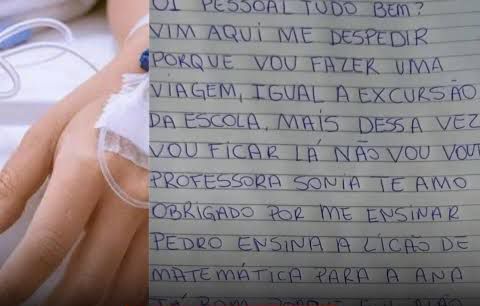 OI PESSOAL TUDO BEM?
VIM AQUI ME DESPEDIR
PORQUE VOU FAZER UMA
VIAGEM, IGUAL A EXCURSÃO
DA ESCOLA, MAIS DESSA VEZ
VOU FICAR LÁ NÃO VOU VOU
PROFESSORA SONIA TE AMO
OBRIGADO POR ME ENSINAR
PEDRO ENSINA A LICÃO DE
MATEMÁTICA PARA A ANA